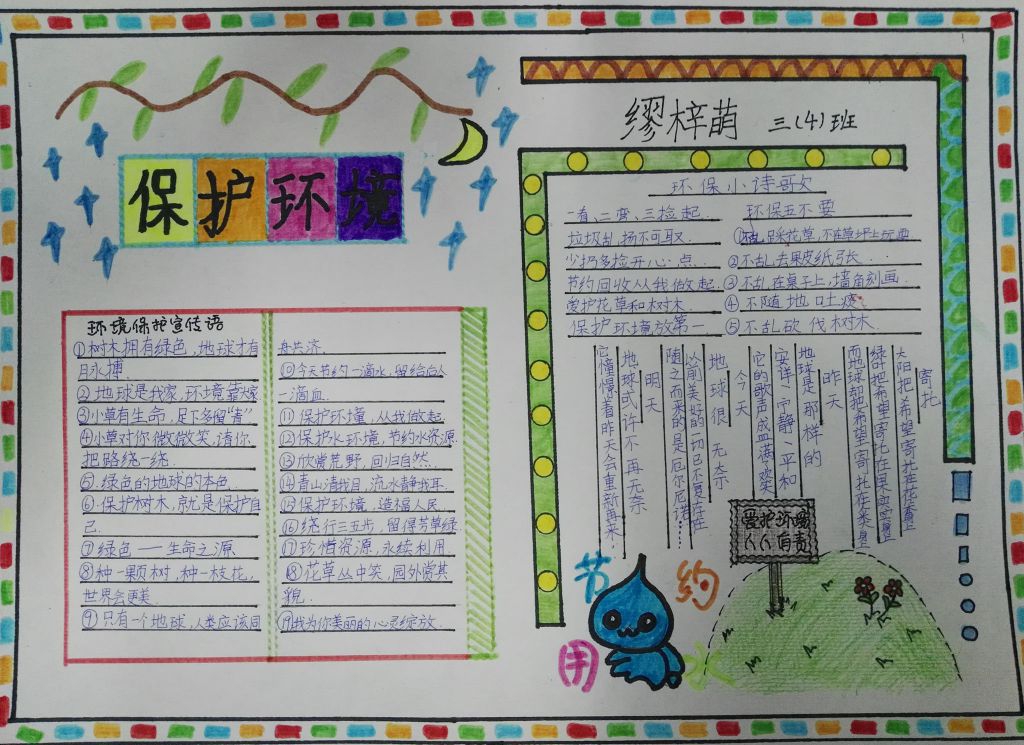 保护环境
环境保护宣传语
①树木拥有绿色，地球才有
脉搏.
②地球是我家，环境靠大家
③小草有生命，足下多留“青”
④小草对你微微笑，请你
把路绕一绕.
⑤绿色的地球的本色
⑥保护树木，就是保护自
己.
⑦绿色——生命之源
⑧种一颗树，种一枝花，
世界会更美.
⑨只有一个地球，人类应该同
舟共济.
⑩今天节约一滴水，留给后人
一滴血.
⑪保护环境，从我做起.
⑫保护水环境，节约水资源.
⑬欣赏荒野，回归自然.
⑭青山清我目，流水静我耳.
⑮保护环境，造福人民.
⑯绕行三五步，留得芳草绿.
⑰珍惜资源，永续利用
⑱花草丛中笑，园外赏其
貌.
⑲我为你美丽的心灵绽放.
缪梓萌 三(4)班
环保小诗歌
一看、二弯、三捡起.
垃圾乱扬不可取.
少扔多捡开心点.
节约回收从我做起.
爱护花草和树木.
保护环境放第一
环保五不要
①不乱踩花草，不在草坪上玩耍.
②不乱丢果皮纸张.
③不乱在桌子上，墙角刻画.
④不随地吐痰.
⑤不乱砍伐树木.
寄托
太阳把希望寄托在花蕾上
绿叶把希望寄托在果实上
而地球却把希望寄托在人类上
昨天
地球是那样的
安详、宁静、平和
它的歌声成血满欢笑
今天
地球很无奈
以前美好的一切已不复存在
随之而来的是厄尔尼诺……
明天
地球或许不再无奈
它憧憬着昨天会重新再来
爱护环境
人人有责
节约
用水